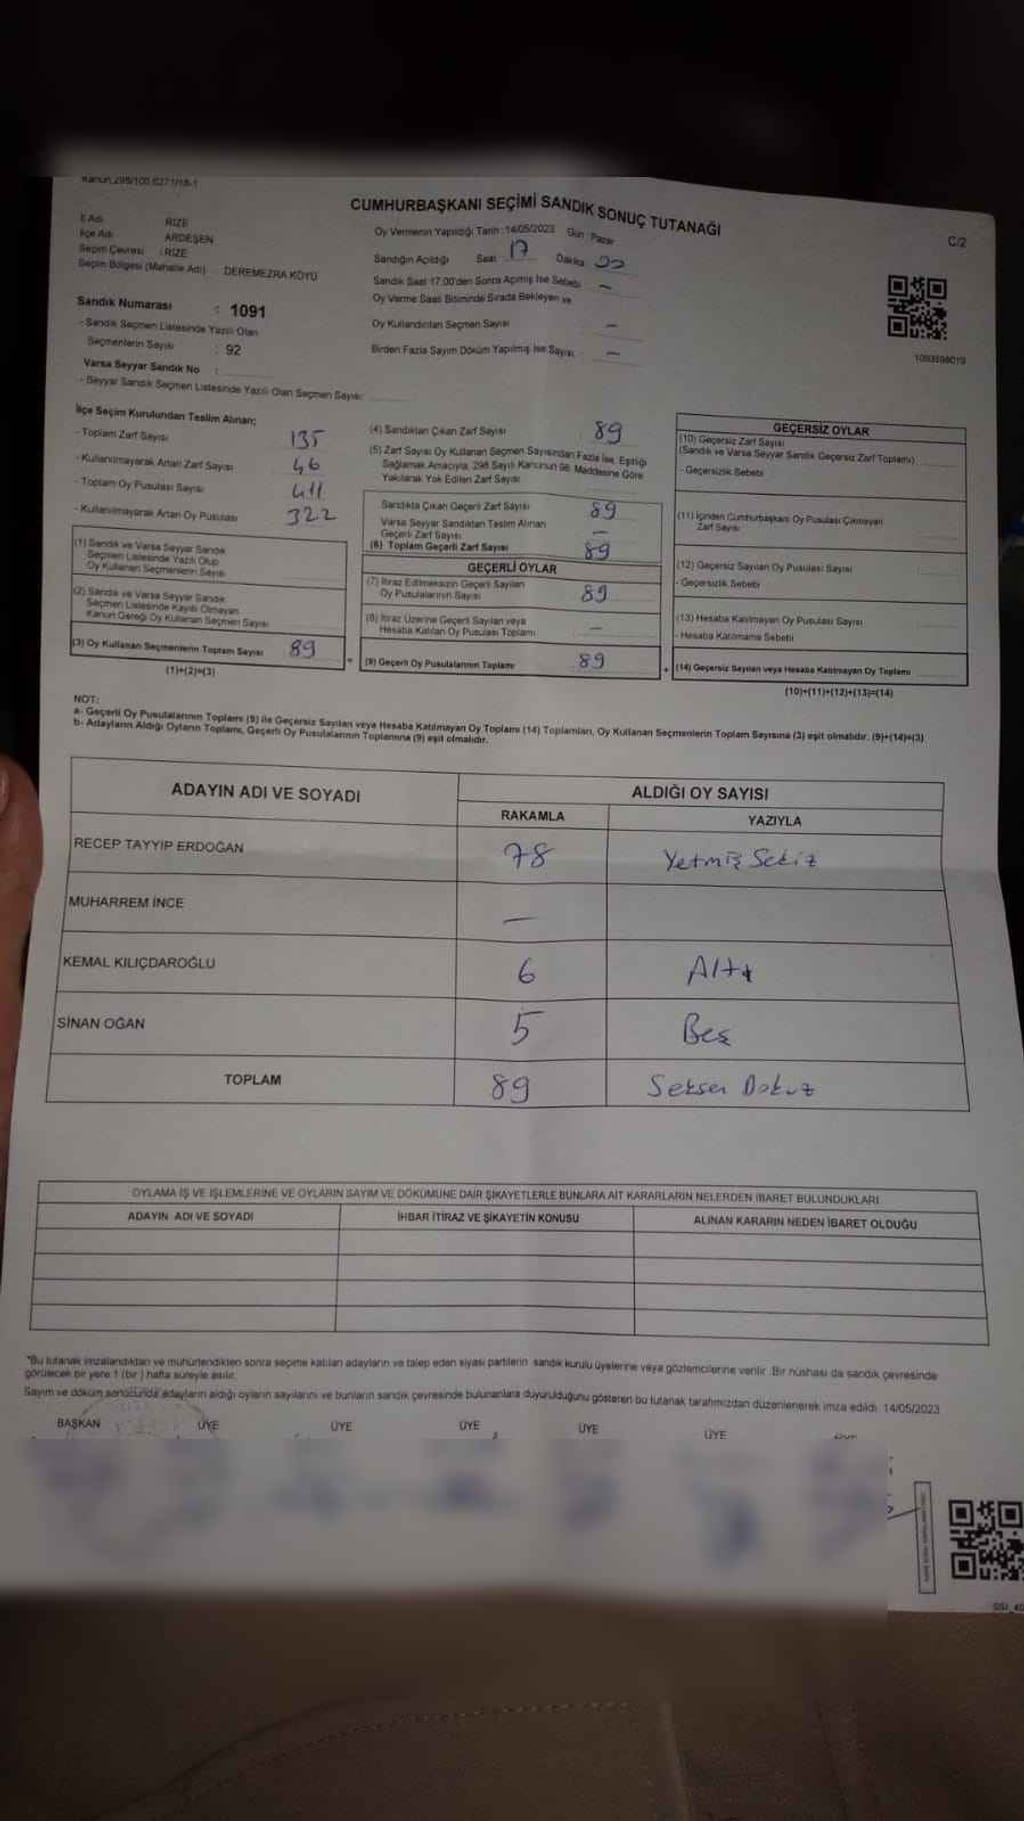 CUMHURBAŞKANI SEÇİMİ SANDIK SONUÇ TUTANAĞI
C/2
İl Adı RİZE
İlçe Adı ARDEŞEN
Seçim Çevresi : RİZE
Seçim Bölgesi (Mahalle Adı) DEREMEZRA KÖYÜ
Sandık Numarası : 1091
- Sandık Seçmen Listesinde Yazılı Olan
Seçmenlerin Sayısı : 92
Varsa Seyyar Sandık No :
- Seyyar Sandık Seçmen Listesinde Yazılı Olan Seçmen Sayısı:
Oy Vermenin Yapıldığı Tarih : 14/05/2023 Gün : Pazar
Sandığın Açıldığı Saat 17 Dakika
Sandık Saat 17:00'den Sonra Açılmış İse Sebebi –
Oy Verme Saati Bitiminde Sırada Bekleyen ve
Oy Kullandırılan Seçmen Sayısı –
Birden Fazla Sayım Döküm Yapılmış İse Sayısı –
İlçe Seçim Kurulundan Teslim Alınan;
- Toplam Zarf Sayısı 135
- Kullanılmayarak Artan Zarf Sayısı 46
- Toplam Oy Pusulası Sayısı 411
- Kullanılmayarak Artan Oy Pusulası 322
(1) Sandık ve Varsa Seyyar Sandık
Seçmen Listesinde Yazılı Olup
Oy Kullanan Seçmenlerin Sayısı
(2) Sandık ve Varsa Seyyar Sandık
Seçmen Listesinde Kayıtlı Olmayan
Kanun Gereği Oy Kullanan Seçmen Sayısı
(3) Oy Kullanan Seçmenlerin Toplam Sayısı 89
(1)+(2)=(3)
(4) Sandıktan Çıkan Zarf Sayısı 89
(5) Zarf Sayısı Oy Kullanan Seçmen Sayısından Fazla İse, Eşitliği
Sağlamak Amacıyla, 298 Sayılı Kanunun 98. Maddesine Göre
Yakılarak Yok Edilen Zarf Sayısı
Sandıkta Çıkan Geçerli Zarf Sayısı 89
Varsa Seyyar Sandıktan Teslim Alınan
Geçerli Zarf Sayısı –
(6) Toplam Geçerli Zarf Sayısı 89
GEÇERLİ OYLAR
(7) İtiraz Edilmeksizin Geçerli Sayılan
Oy Pusulalarının Sayısı 89
(8) İtiraz Üzerine Geçerli Sayılan veya
Hesaba Katılan Oy Pusulası Toplamı –
(9) Geçerli Oy Pusulalarının Toplamı 89
GEÇERSİZ OYLAR
(10) Geçersiz Zarf Sayısı
(Sandık ve Varsa Seyyar Sandık Geçersiz Zarf Toplamı)
- Geçersizlik Sebebi
(11) İçinden Cumhurbaşkanı Oy Pusulası Çıkmayan
Zarf Sayısı
(12) Geçersiz Sayılan Oy Pusulası Sayısı
- Geçersizlik Sebebi
(13) Hesaba Katılmayan Oy Pusulası Sayısı
- Hesaba Katılmama Sebebi
(14) Geçersiz Sayılan veya Hesaba Katılmayan Oy Toplamı
(10)+(11)+(12)+(13)=(14)
NOT:
a- Geçerli Oy Pusulalarının Toplamı (9) ile Geçersiz Sayılan veya Hesaba Katılmayan Oy Toplamı (14) Toplamları, Oy Kullanan Seçmenlerin Toplam Sayısına (3) eşit olmalıdır. (9)+(14)=(3)
b- Adayların Aldığı Oyların Toplamı, Geçerli Oy Pusulalarının Toplamına (9) eşit olmalıdır.
ADAYIN ADI VE SOYADI ALDIĞI OY SAYISI
RAKAMLA YAZIYLA
RECEP TAYYİP ERDOĞAN 78 Yetmiş Sekiz
MUHARREM İNCE –
KEMAL KILIÇDAROĞLU 6 Altı
SİNAN OĞAN 5 Beş
TOPLAM 89 Seksen Dokuz
OYLAMA İŞ VE İŞLEMLERİNE VE OYLARIN SAYIM VE DÖKÜMÜNE DAİR ŞİKAYETLERLE BUNLARA AİT KARARLARIN NELERDEN İBARET BULUNDUKLARI
ADAYIN ADI VE SOYADI İHBAR İTİRAZ VE ŞİKAYETİN KONUSU ALINAN KARARIN NEDEN İBARET OLDUĞU
*Bu tutanak imzalandıktan ve mühürlendikten sonra seçime katılan adayların ve talep eden siyasi partilerin sandık kurulu üyelerine veya gözlemcilerine verilir. Bir nüshası da sandık çevresinde
görülecek bir yere 1 (bir) hafta süreyle asılır.
Sayım ve döküm sonucunda adayların aldığı oyların sayılarını ve bunların sandık çevresinde bulunanlara duyurulduğunu gösteren bu tutanak tarafımızdan düzenlenerek imza edildi. 14/05/2023
BAŞKAN ÜYE ÜYE ÜYE ÜYE ÜYE